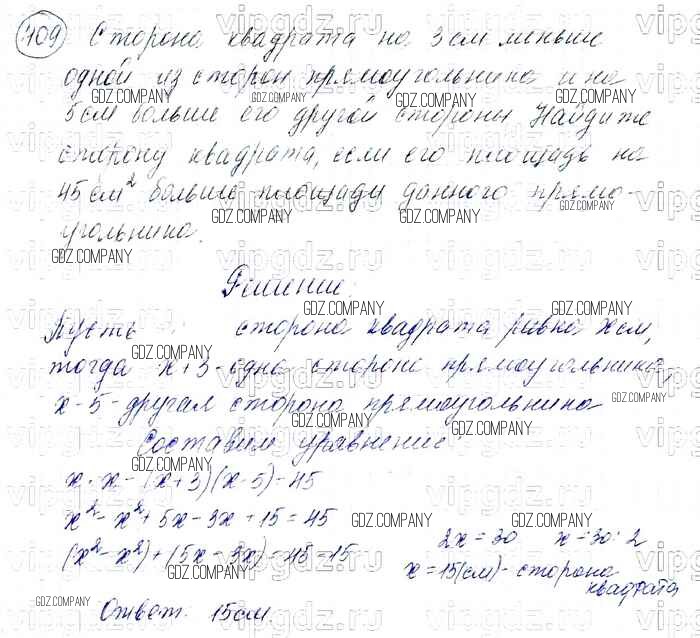 409 Сторона квадрата на 3 см меньше
одной из сторон прямоугольника и на
5 см больше его другой стороны Найдите
сторону квадрата, если его площадь на
45 см² больше площади данного прямо-
угольника.
Решение:
Пусть сторона квадрата равна x см,
тогда x+3-одна сторона прямоугольника,
x-5-другая сторона прямоугольника
Составим уравнение
x·x-(x+3)(x-5)=45
x²-x²+5x-3x+15=45
(x²-x²)+(5x-3x)=45-15
2x=30 x=30:2
x=15(см)-сторона
квадрата
Ответ. 15см.
vipgdz.ru
GDZ.COMPANY